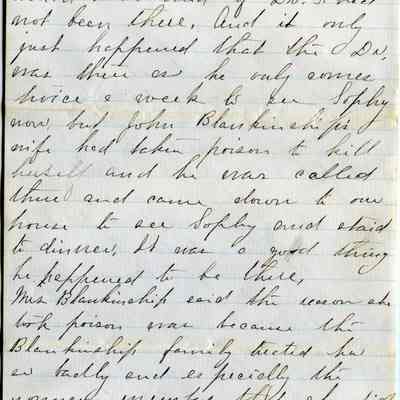 not been there. And it only
just happened that the Dr.
was there as he only comes
twice a week to see Sophy
now but John Blankinships
wife had taken poison to kill
herself and he was called
there and came down to our
house to see Sophy and staid
to dinner. It was a good thing
he happened to be there,
Mrs Blankinship said the reason she
took poison was because the
Blankinship family treted her
so badly and especially the